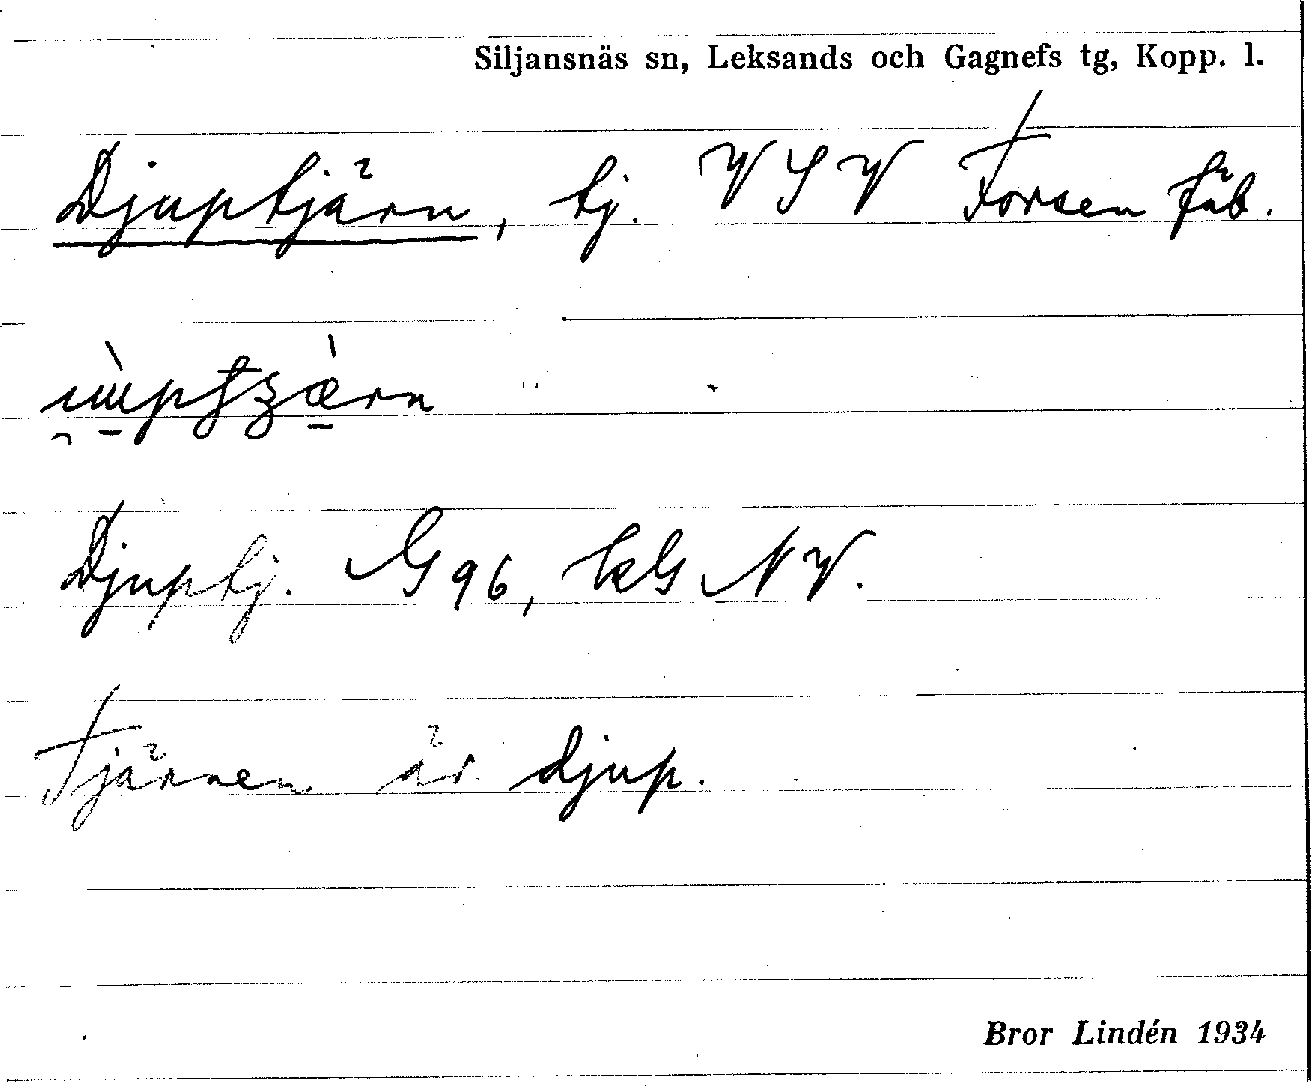 Siljansnäs sn, Leksands och Gagnefs tg, Kopp. l.
Djuptjärn, tj. VSV Forsen fäb.
Djuptj. G96, lkG NV.
Tjärnen är djup.
Bror Lindén 1934